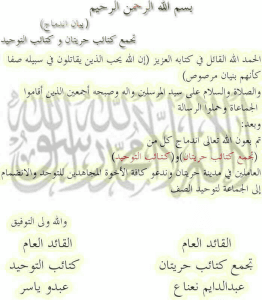 بسم الله الرحمن الرحيم
(بيان اندماج)
تجمع كتائب حريتان و كتائب التوحيد
الحمد الله القائل في كتابه العزيز (إن الله يحب الذين يقاتلون في سبيله صفا
كأنهم بنيان مرصوص)
والصلاة والسلام على سيد المرسلين وآله وصحبه أجمعين الذين أقاموا
الجماعة وحملوا الرسالة
وبعد:
تم بعون الله تعالى اندماج كل من
(تجمع كتائب حريتان)و(كتائب التوحيد)
العاملين في مدينة حريتان وندعو كافة الأخوة المجاهدين للتوحد والانضمام
إلى الجماعة لتوحيد الصف
والله ولى التوفيق
القائد العام القائد العام
تجمع كتائب حريتان كتائب التوحيد
عبدالدايم نعناع عبدو ياسر
لا إله إلا الله محمد رسول الله